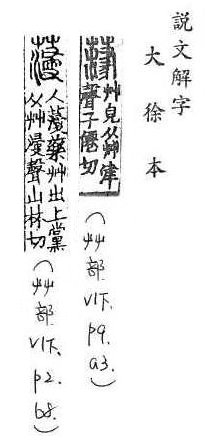 說文解字
大徐本
葏
艸皃从艸津
聲子僊切
(艸部 V1下. p9. a3.)
𦼮
人𦼮藥艸出上黨
从艸𣹰聲山林切
(艸部 V1下. p2. b8.)